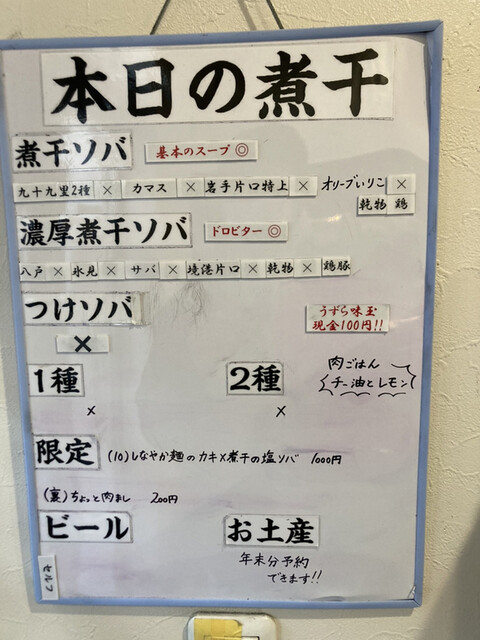 本日の煮干
煮干ソバ 基本のスープ◎
九十九里2種 × カマス × 岩手片口特上 × オリーブいりこ ×
乾物 鶏
濃厚煮干ソバ ドロビター◎
八戸 × 氷見 × サバ × 境港片口 × 乾物 × 鶏豚
つけソバ
うずら味玉
現金100円!!
×
1種
×
2種
×
肉ごはん
チー油とレモン
限定 (10)しなやか麺のカキ×煮干の塩ソバ 1000円
(裏)ちょっと肉まし 200円
ビール
セルフ
お土産
年末分予約
できます!!